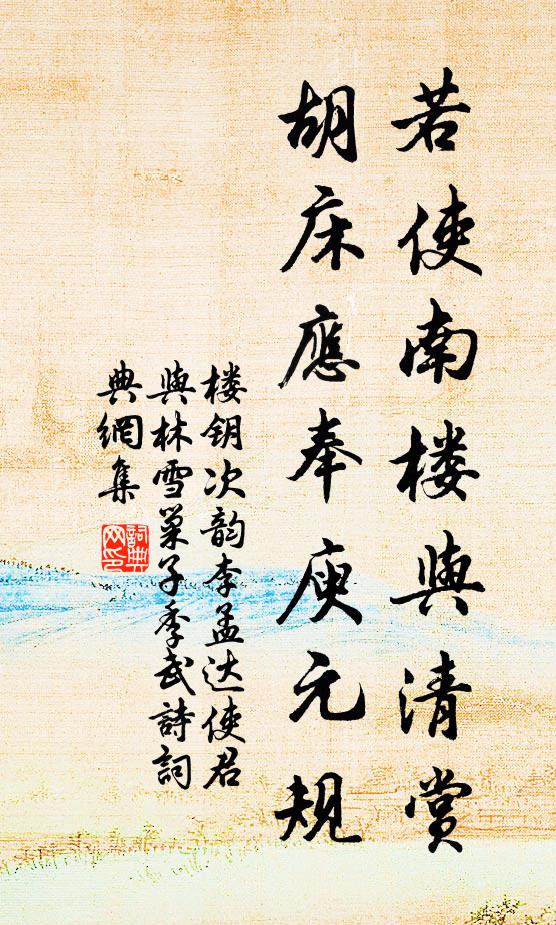 若使南楼與清賞
胡床應奉庾元規
楼钥次韵李孟达使君
與林雪巢子季武詩詞
典網集
詞典網印